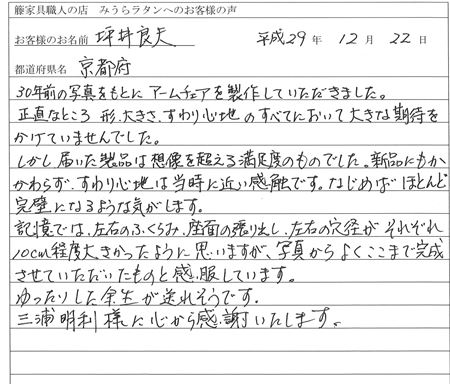 藤家具職人の店　みうらラタンへのお客様の声
お客様のお名前　坪井良夫　平成29年　12月　22日
都道府県名　京都府
30年前の写真をもとに アームチェアを製作していただきました。
正直なところ 形、大きさ、すわり心地 のすべてにおいて大きな期待を
かけていませんでした。
しかし届いた製品は想像を超える満足度のものでした。新品にもか
かわらず、すわり心地は当時に近い感触です。なじめば ほとんど
完壁になるような気がします。
記憶では、左右のふくらみ、座面の張り出し、左右の穴径が それぞれ
10cm程度大きかったように思いますが、写真からよくここまで完成
させていただいたものと感服しています。
ゆったりした余生が送れそうです。
三浦明利様に心から感謝いたします。